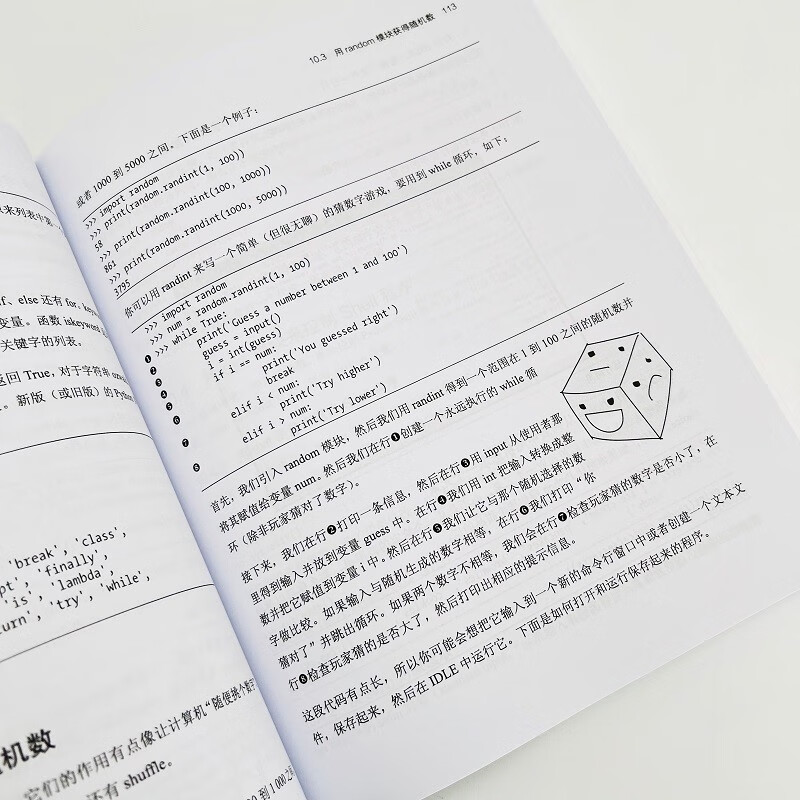 10.3 用 random 模块获得随机数 113
或者 1000 到 5000 之间。下面是一个例子：
>>> import random
>>> print(random.randint(1, 100))
58
>>> print(random.randint(100, 1000))
861
>>> print(random.randint(1000, 5000))
3795
你可以用 randint 来写一个简单（但很无聊）的猜数字游戏，要用到 while 循环，如下：
>>> import random
>>> num = random.randint(1, 100)
❶ >>> while True:
❷ print('Guess a number between 1 and 100')
❸ guess = input()
❹ i = int(guess)
❺ if i == num:
print('You guessed right')
❻ break
❼ elif i < num:
print('Try higher')
❽ elif i > num:
print('Try lower')
首先，我们引入 random 模块，然后我们用 randint 得到一个范围在 1 到 100 之间的随机数并
将其赋值给变量 num。然后我们在行❶创建一个永远执行的 while 循
环（除非玩家猜对了数字）。
接下来，我们在行❷打印一条信息，然后在行❸用 input 从使用者那
里得到输入并放到变量 guess 中。在行❹我们用 int 把输入转换成整
数并把它赋值到变量 i 中。然后在行❺我们让它与那个随机选择的数
字做比较。如果输入与随机生成的数字相等，在行❻我们打印“你
猜对了”并跳出循环。如果两个数字不相等，我们会在行❼检查玩家猜的数字是否小了，在
行❽检查玩家猜的是否大了，然后打印出相应的提示信息。
这段代码有点长，所以你可能会想把它输入到一个新的命令行窗口中或者创建一个文本文
件，保存起来，然后在 IDLE 中运行它。下面是如何打开和运行保存起来的程序。
来列表中某
else 还有 for、
变量。函数 iskeyword
关键字的列表。
返回 True，对于字符串
。新版（或旧版）的 Python
'break', 'class',
'finally',
'is', 'lambda',
'try', 'while',
机数
它们的作用有点像让计算机“随便挑个数字
还有 shuffle。
到 1000 之